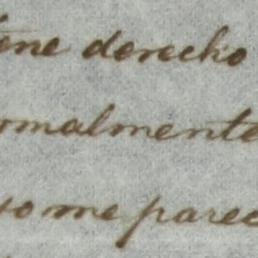 tiene derecho
ormalmente
so me parec